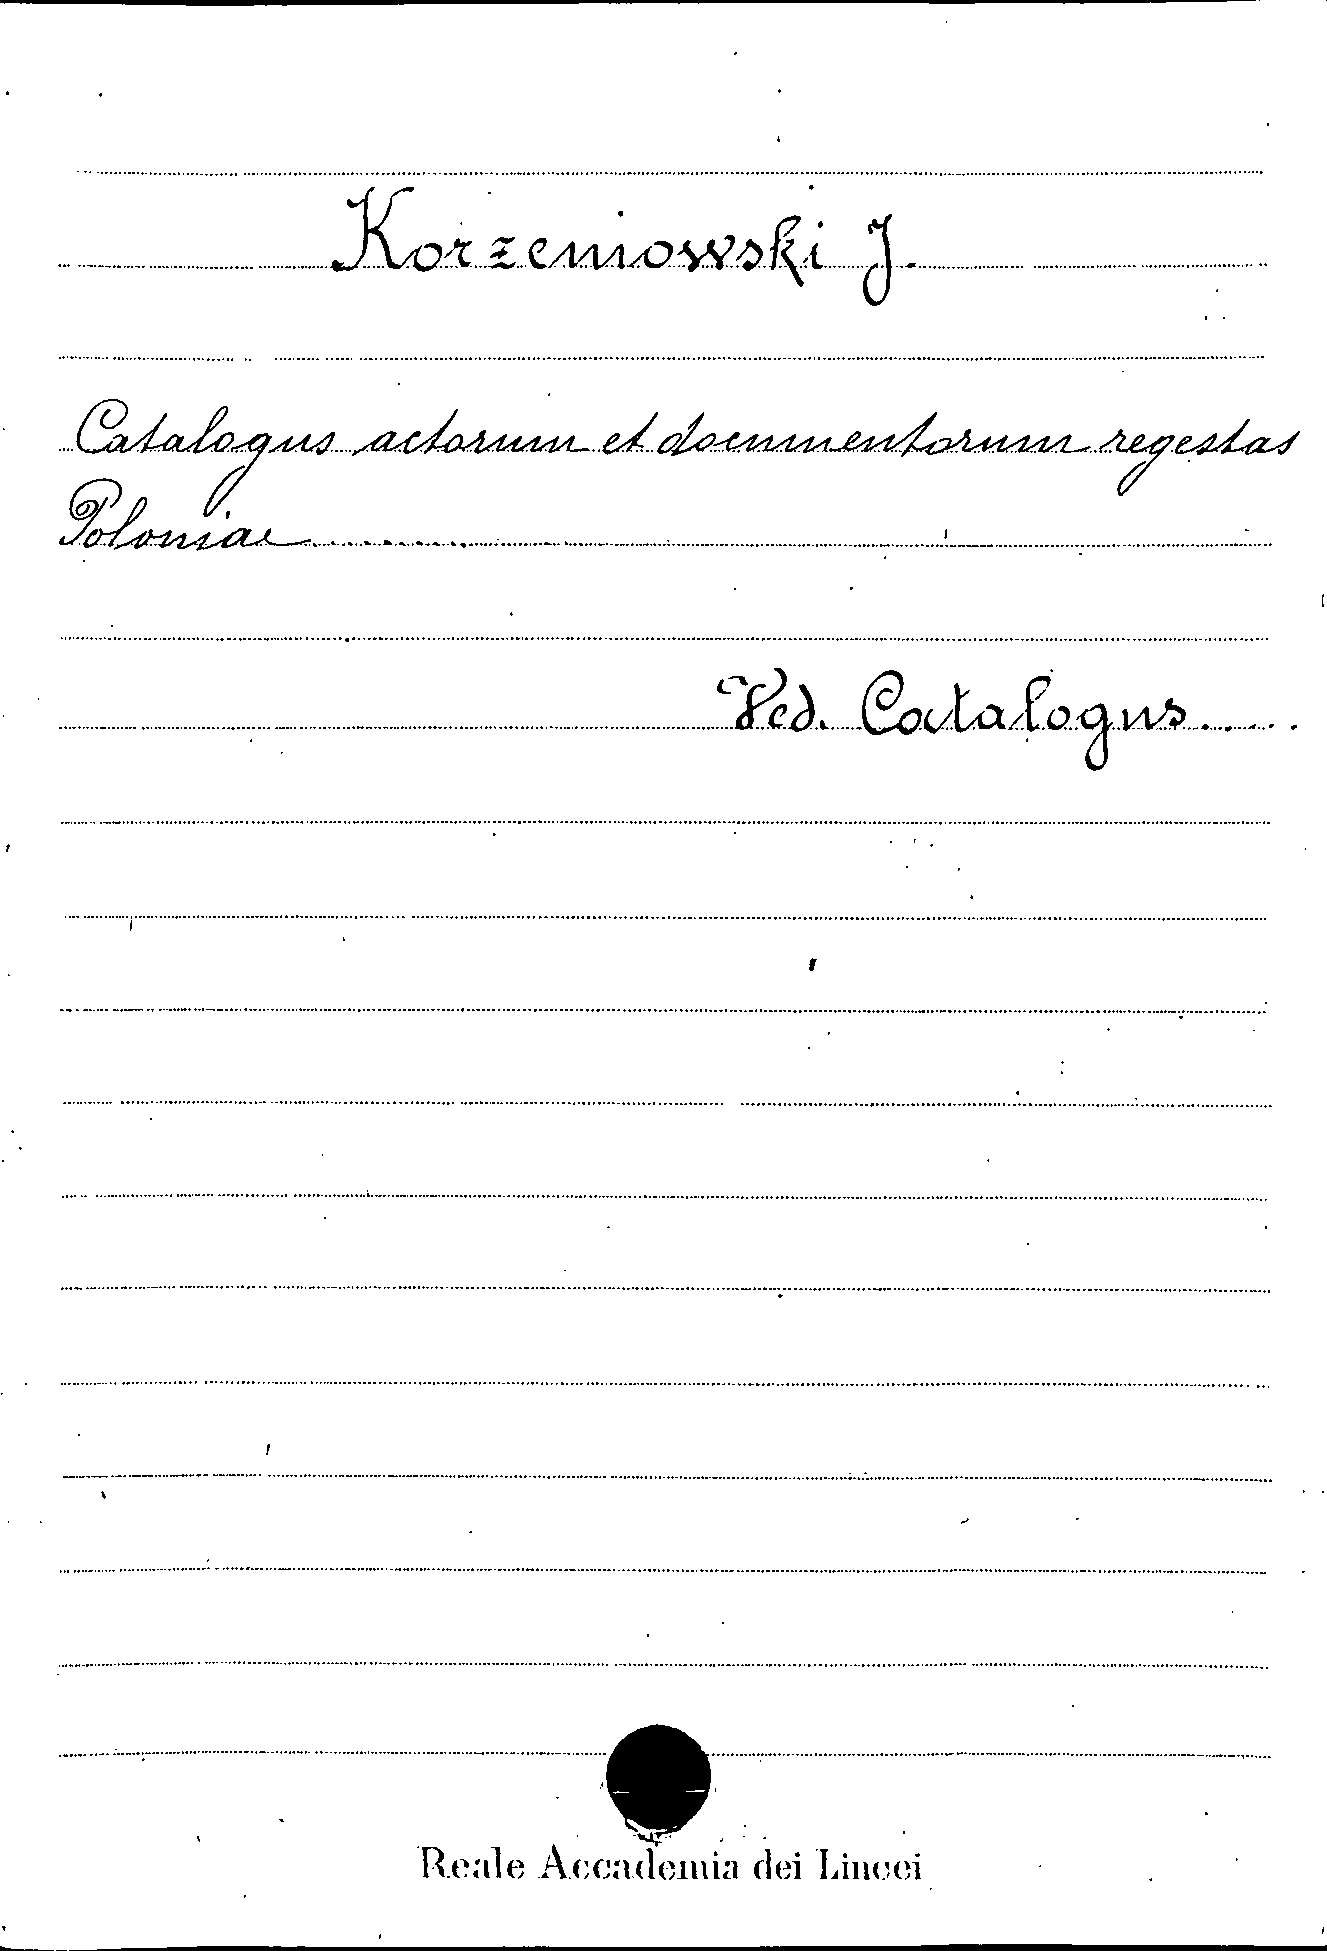 Korzeniowski J.
Catalogus actorum et documentorum regestas
Poloniae..........
Ved. Catalogus.....
Reale Accademia dei Lincei